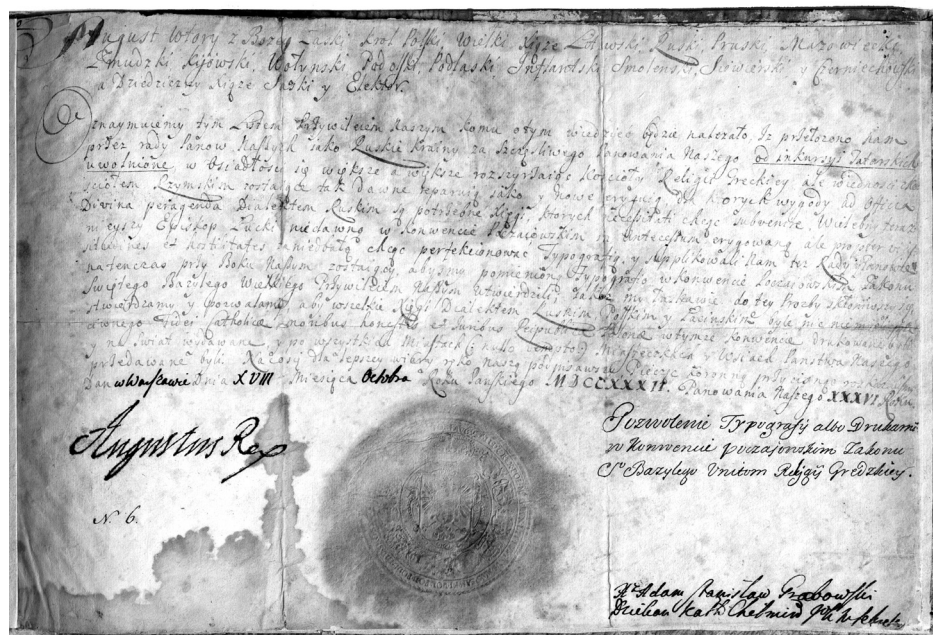 August Wtory z Bożey Łaski Krol Polski, Wielki Xiąże Litewski, Ruski, Pruski, Mazowiecki,
Zmudzki, Kijowski, Wołynski, Podolski, Podlaski, Inflantski, Smolenski, Siewierski y Czerniechowski
a Dziedziczny Xiąże Saski y Elektor.
Oznaymuiemy tym Listem Przywileiem Naszym komu o tym wiedzieć będzie należało, Iż przełożono Nam
przez rady Panow Naszych iako Ruskie Krainy za Szczęśliwego Panowania Naszego od inkursyi Tatarskich
uwolnione, w osiadłości się większe a wyższe Kościoły Religii Greckiey ale w iedności z Ko
ściołem Rzymskim zostaiące tak dawne reparuią iako y nowe eryguią, dla ktorych wygody ad officia
Divina peragenda Dialektem Ruskim są potrzebne Xięgi, ktorych chcąc subvenire, Wielebny teraz
nieyszy Episkop Łucki niedawno w Konwencie Poczaiowskim erygowaną ale
et chcąc perfekcionować Typografią, y applikowali Nam też Rady Panowie
natenczas przy Boku Naszym zostaiący, abyśmy pomienioną Typografią w Konwencie Poczaiowskim Zakonu
Swiętego Bazylego Wielkiego Przywileiem Naszym utwierdzili, Jakoż my łaskawie do tey prozby skłoniwszy się
utwierdzamy y pozwalamy aby wszelkie Xięgi Dialektem Ruskim Polskim y Łacinskim byle nic
Fidei Catholicae moribus honestis et w tymże Konwencie drukowane były
y na swiat wydawane, y po wszystkich Miastach Miasteczkach y Wsiach Panstwa Naszego
przedawane były. Na co się dla lepszey wiary ręką naszą podpisawszy Pieczęć Koronną przycisnąć rozkazaliśmy
Dan w Warszawie Dnia XVIII Miesiąca Octobra Roku Panskiego MDCCXXXII. Panowania Naszego XXXVI Roku.
Augustus Rex
Pozwolenie Typografij albo Drukarni
w Konwencie poczajowskim Zakonu
Sº Bazylego Unitom Religij Gredzkiey.
N. 6.
Xº Adam Stanisław Grabowski
Dziekan Kath. Chełmin